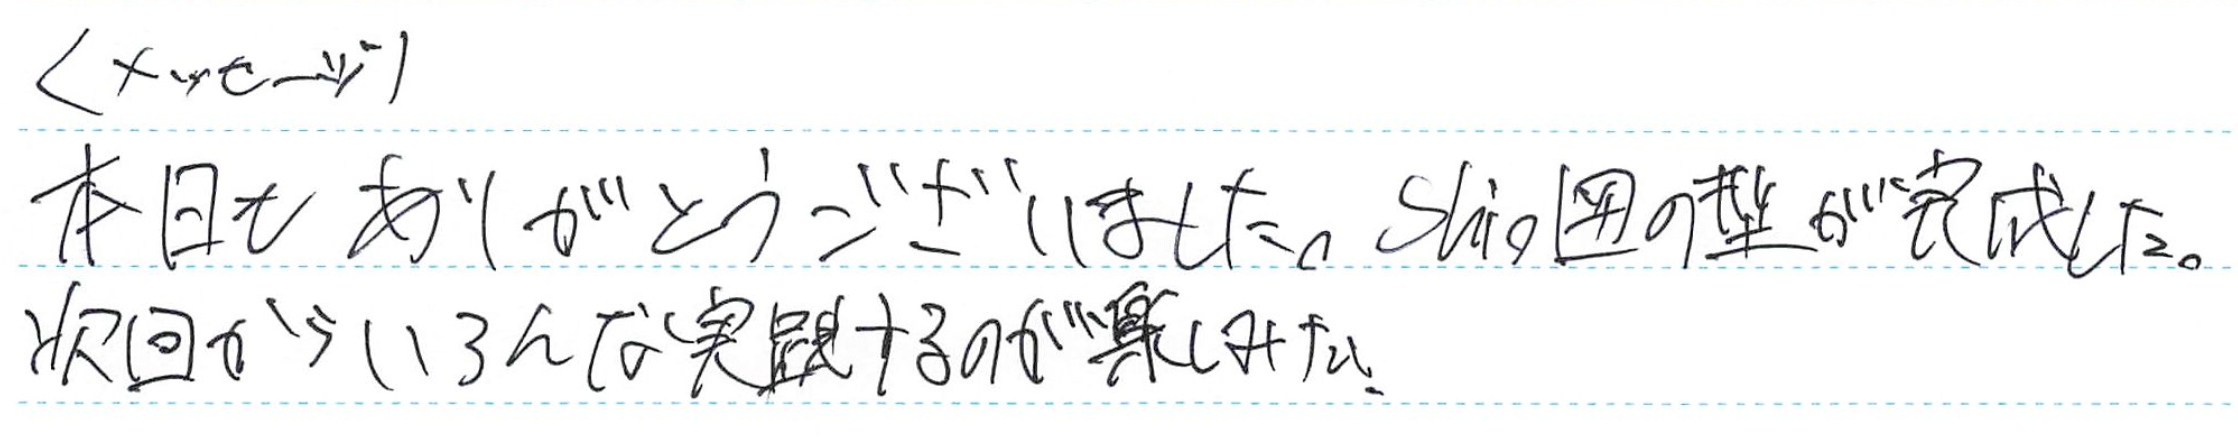 <メッセージ>
本日もありがとうございました。Shio図の型が完成した。
次回からいろんな実践するのが楽しみだ